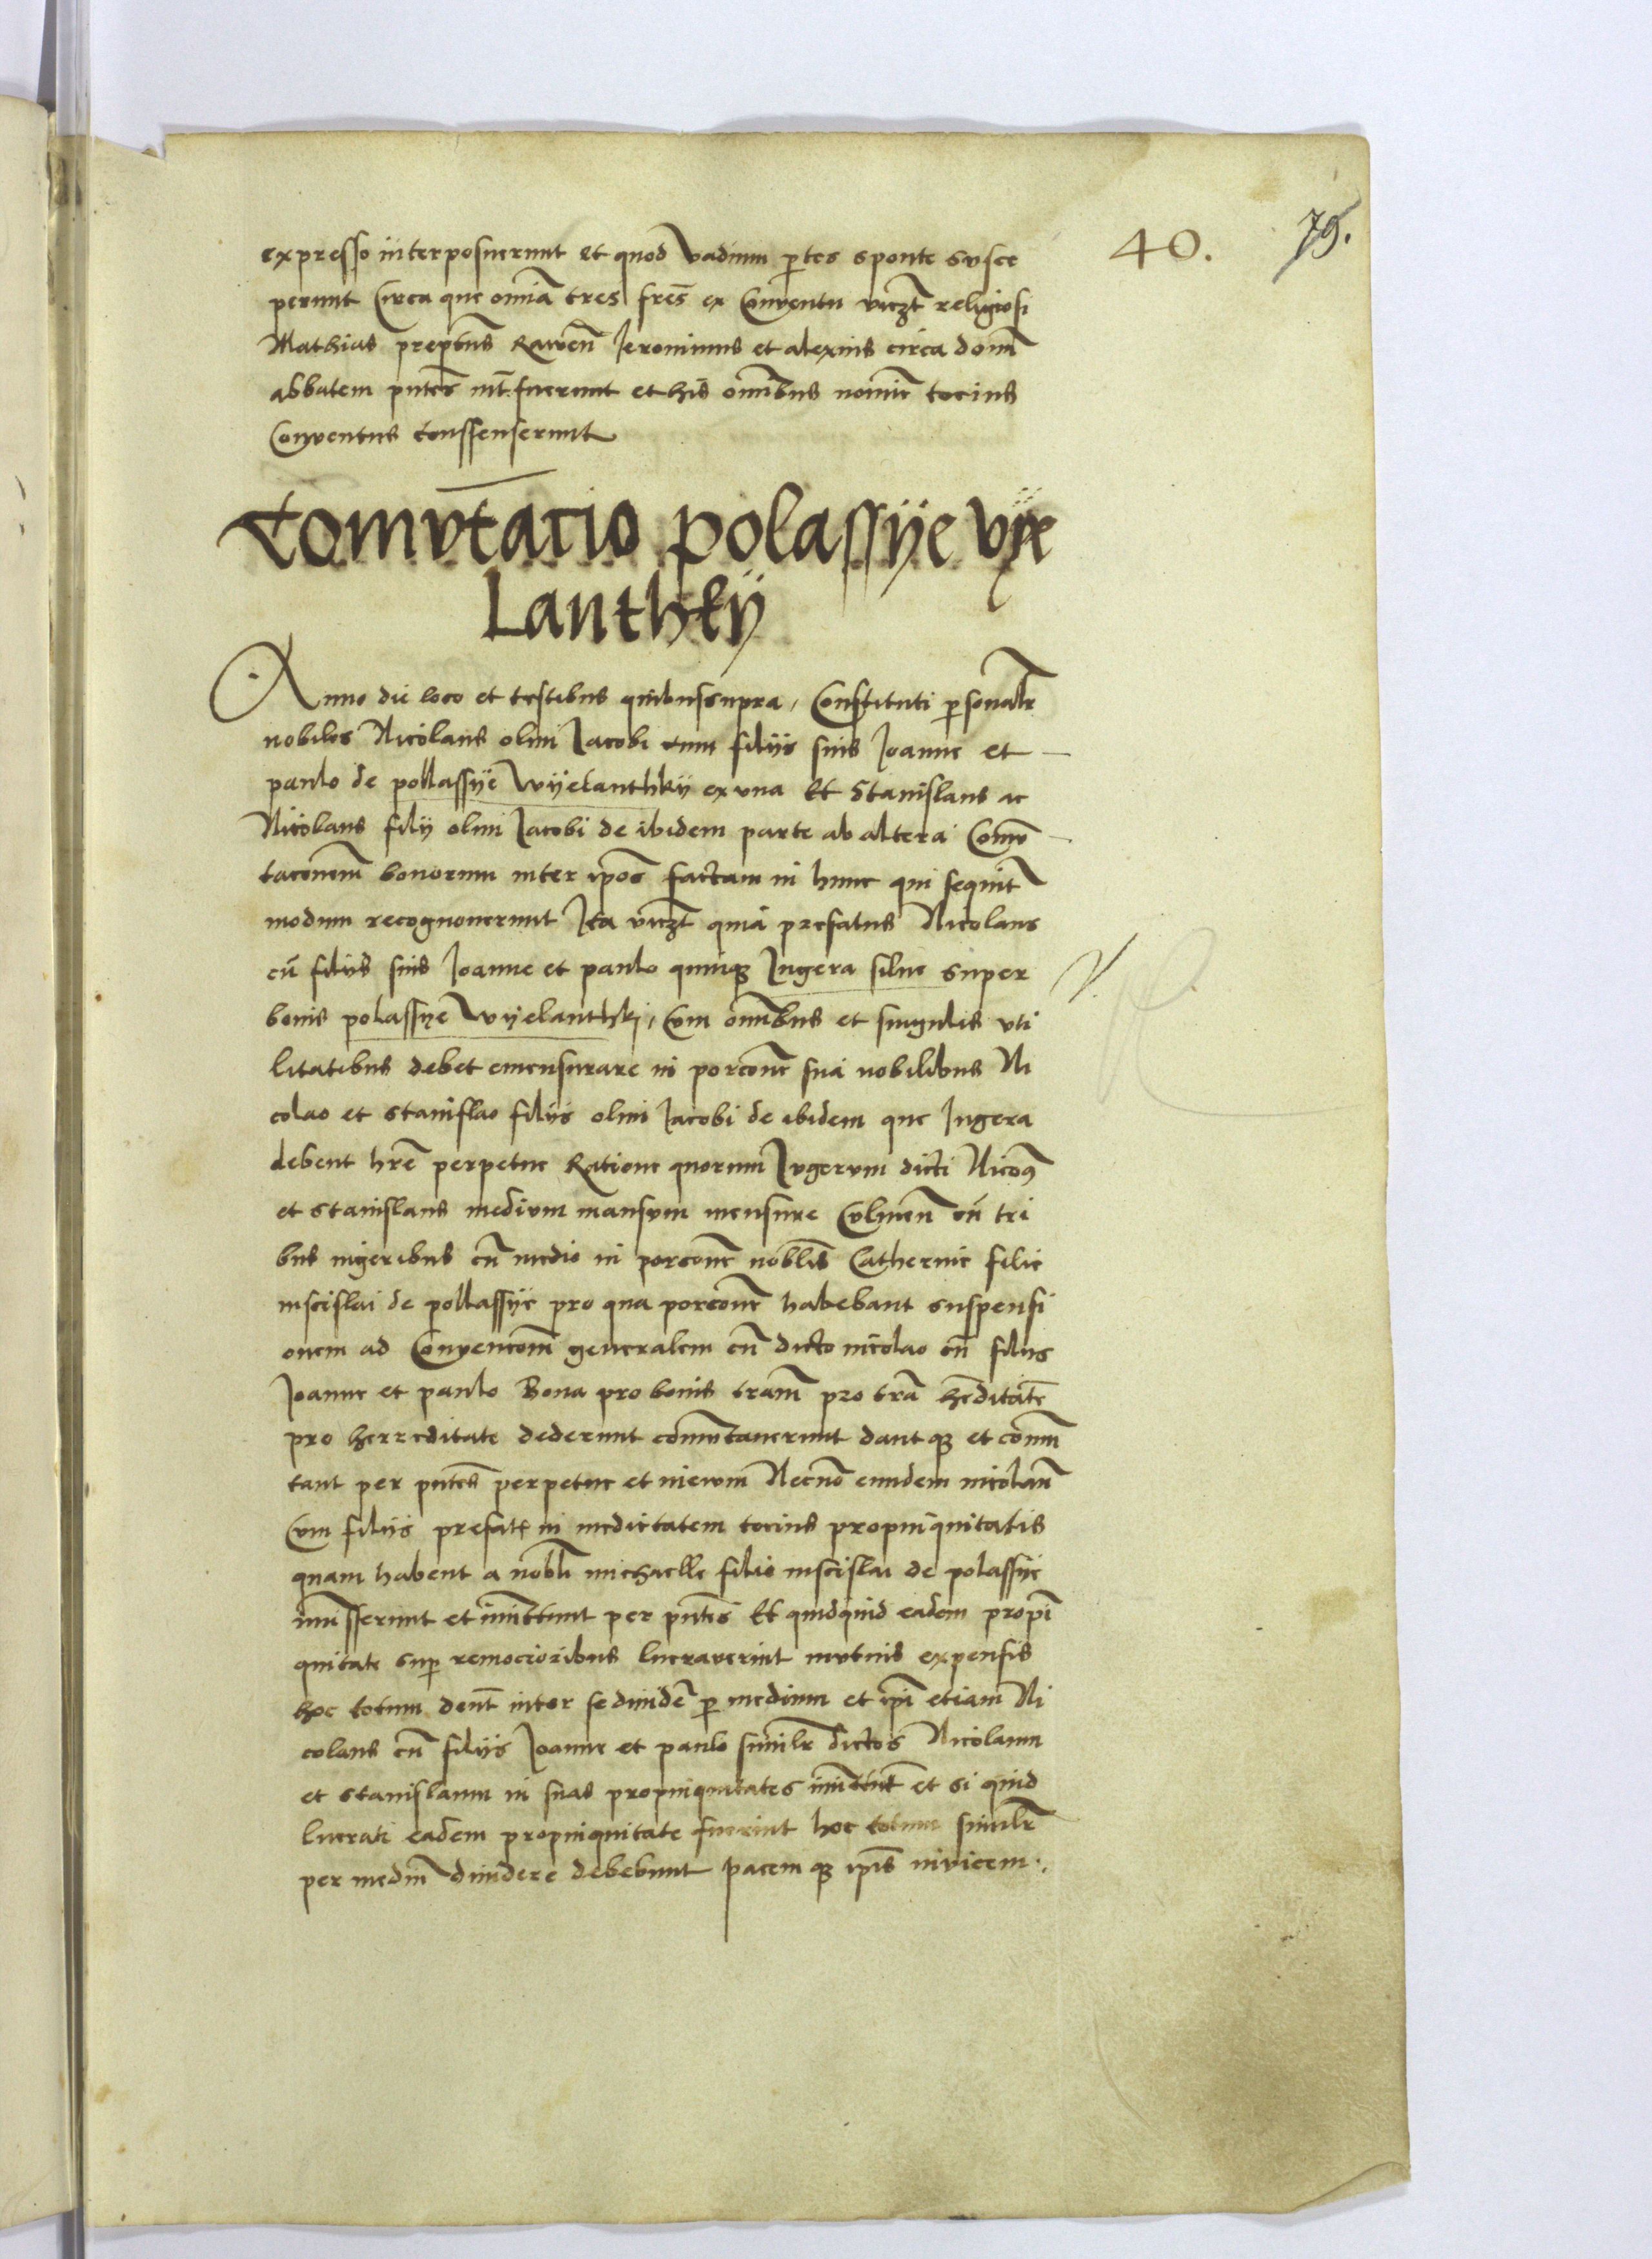 40. 79.
expresso interposuerunt et quod vadium ptes sponte susce
perunt Circa que omīa tres fres̄ ex Conventu viczt religiosi
Mathias prepts̄ Raven̄ Jeronimus et alexius circa dom̄
abbatem pn̄tes int̄fuerunt et his om̄ibus nomīe tocius
Conventus conssenserunt
Comvtacio polassÿe vÿe
Lanthkÿ
Anno die loco et testibus quibussupra, Constituti psonalr̄
nobiles Nicolaus olim Jacobi cum filiis suis Joanne et
paulo de pollassÿe Wÿelanthkÿ ex vna Et Stanislaus ac
Nicolaus filij olim Jacobi de ibidem parte ab altera Comv̄
tacōnem bonorum inter ip̄os factam in hunc qui sequit̄
modum recognouerunt Ita viczt quia prefatus Nicolaus
cū filiis suis Joanne et paulo quinqʒ Jugera silue super
bonis polassÿe Wÿelanthkj, Cum om̄ibus et singulis vti
litatibus debet emensurare in porcōne sua nobilibus Ni
colao et stanislao filiis olim Jacobi de ibidem que Jugera
debent hr̄e perpetue Ratione quorum Jvgervm dicti Nico9
et stanislaus medivm mansvm mensure Cvlmen̄ cū tri
bus iugeribus cū medio in porcōne nobl̄is Catherine filie
mscislai de pollassÿe pro qua porcōne habebant suspensi
onem ad Convencōm̄ generalem cū dicto nicolao cū filiis
Joanne et paulo Bona pro bonis tram̄ pro tra̅ hēditatē
pro herreditate dederunt comvtauerunt dantqʒ et comm̄
tant per pn̄tes perpetue et in ewm Necnō eundem nicolaū
Cvm filiis prefate in medietatem tocius propinquitatis
quam habent a nobl̄i michaelle filio mscislai de polassÿe
immisserunt et immittunt per pn̄tes Et quidquid eadem propī
quitate sup remocioribus lucraverint mvtuis expensis
hoc totum debnt̄ inter se diuidē p medium et ip̄i etiam Ni
colaus cū filiis Joanne et paulo similr̄ dictos Nicolaum
et stanislaum in suas propinquitates immittūt et si quid
lucrati eadem propinquitate fuerint hoc totum similr̄
per mediū diuidere debebunt pacemqʒ ip̄is invicem